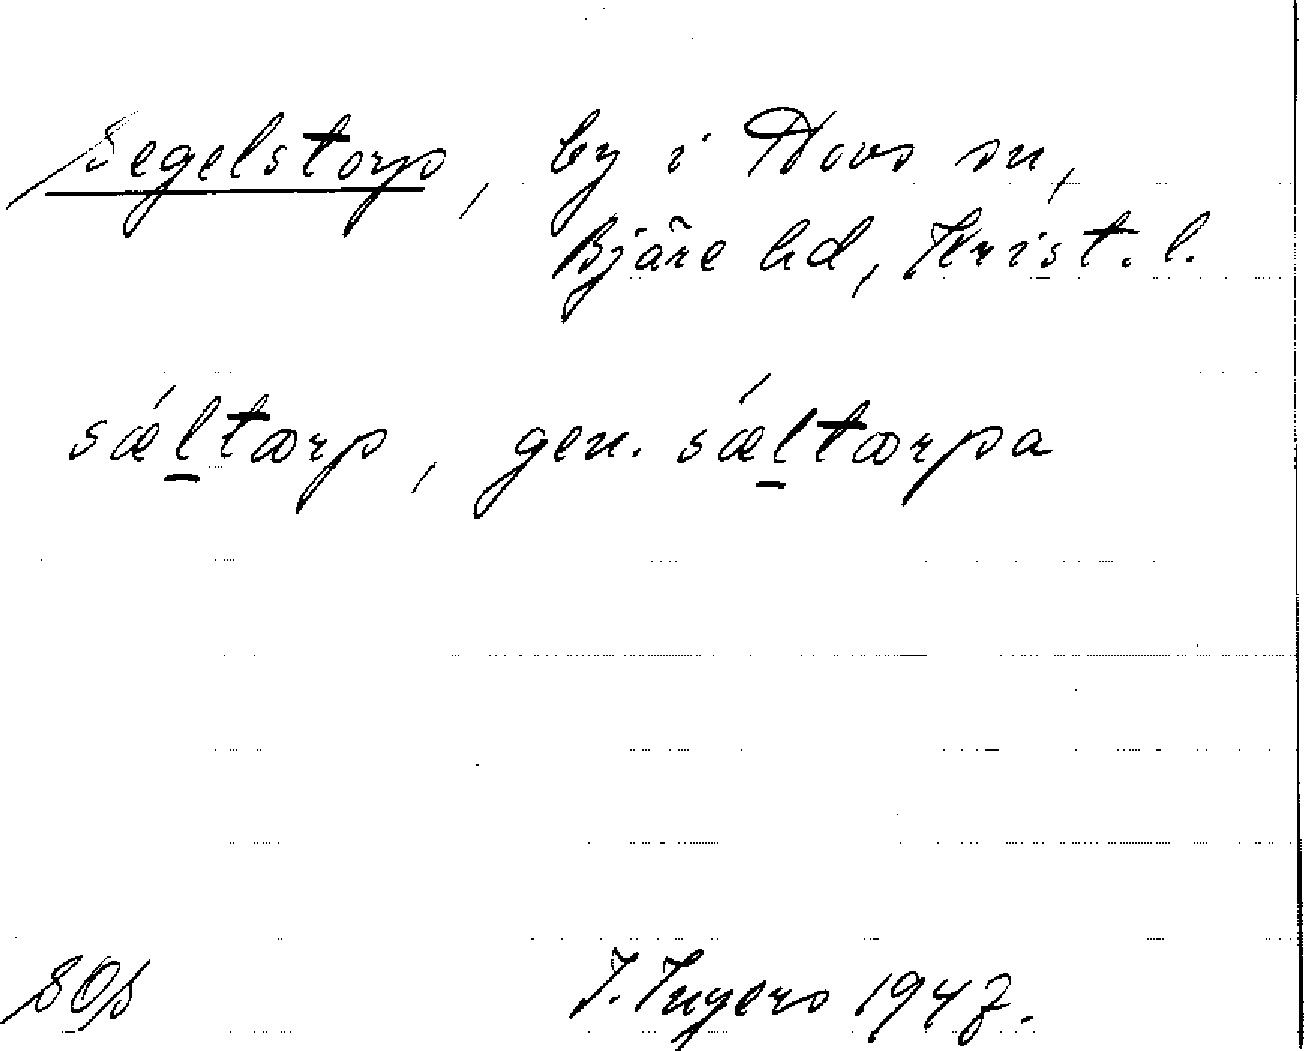 Segelstorp, by i Hovs sn,
Bjäre hd, Krist. l.
sæ̀ltærp, gen. sæ̀ltærpa
SOS I. Ingers 1947.